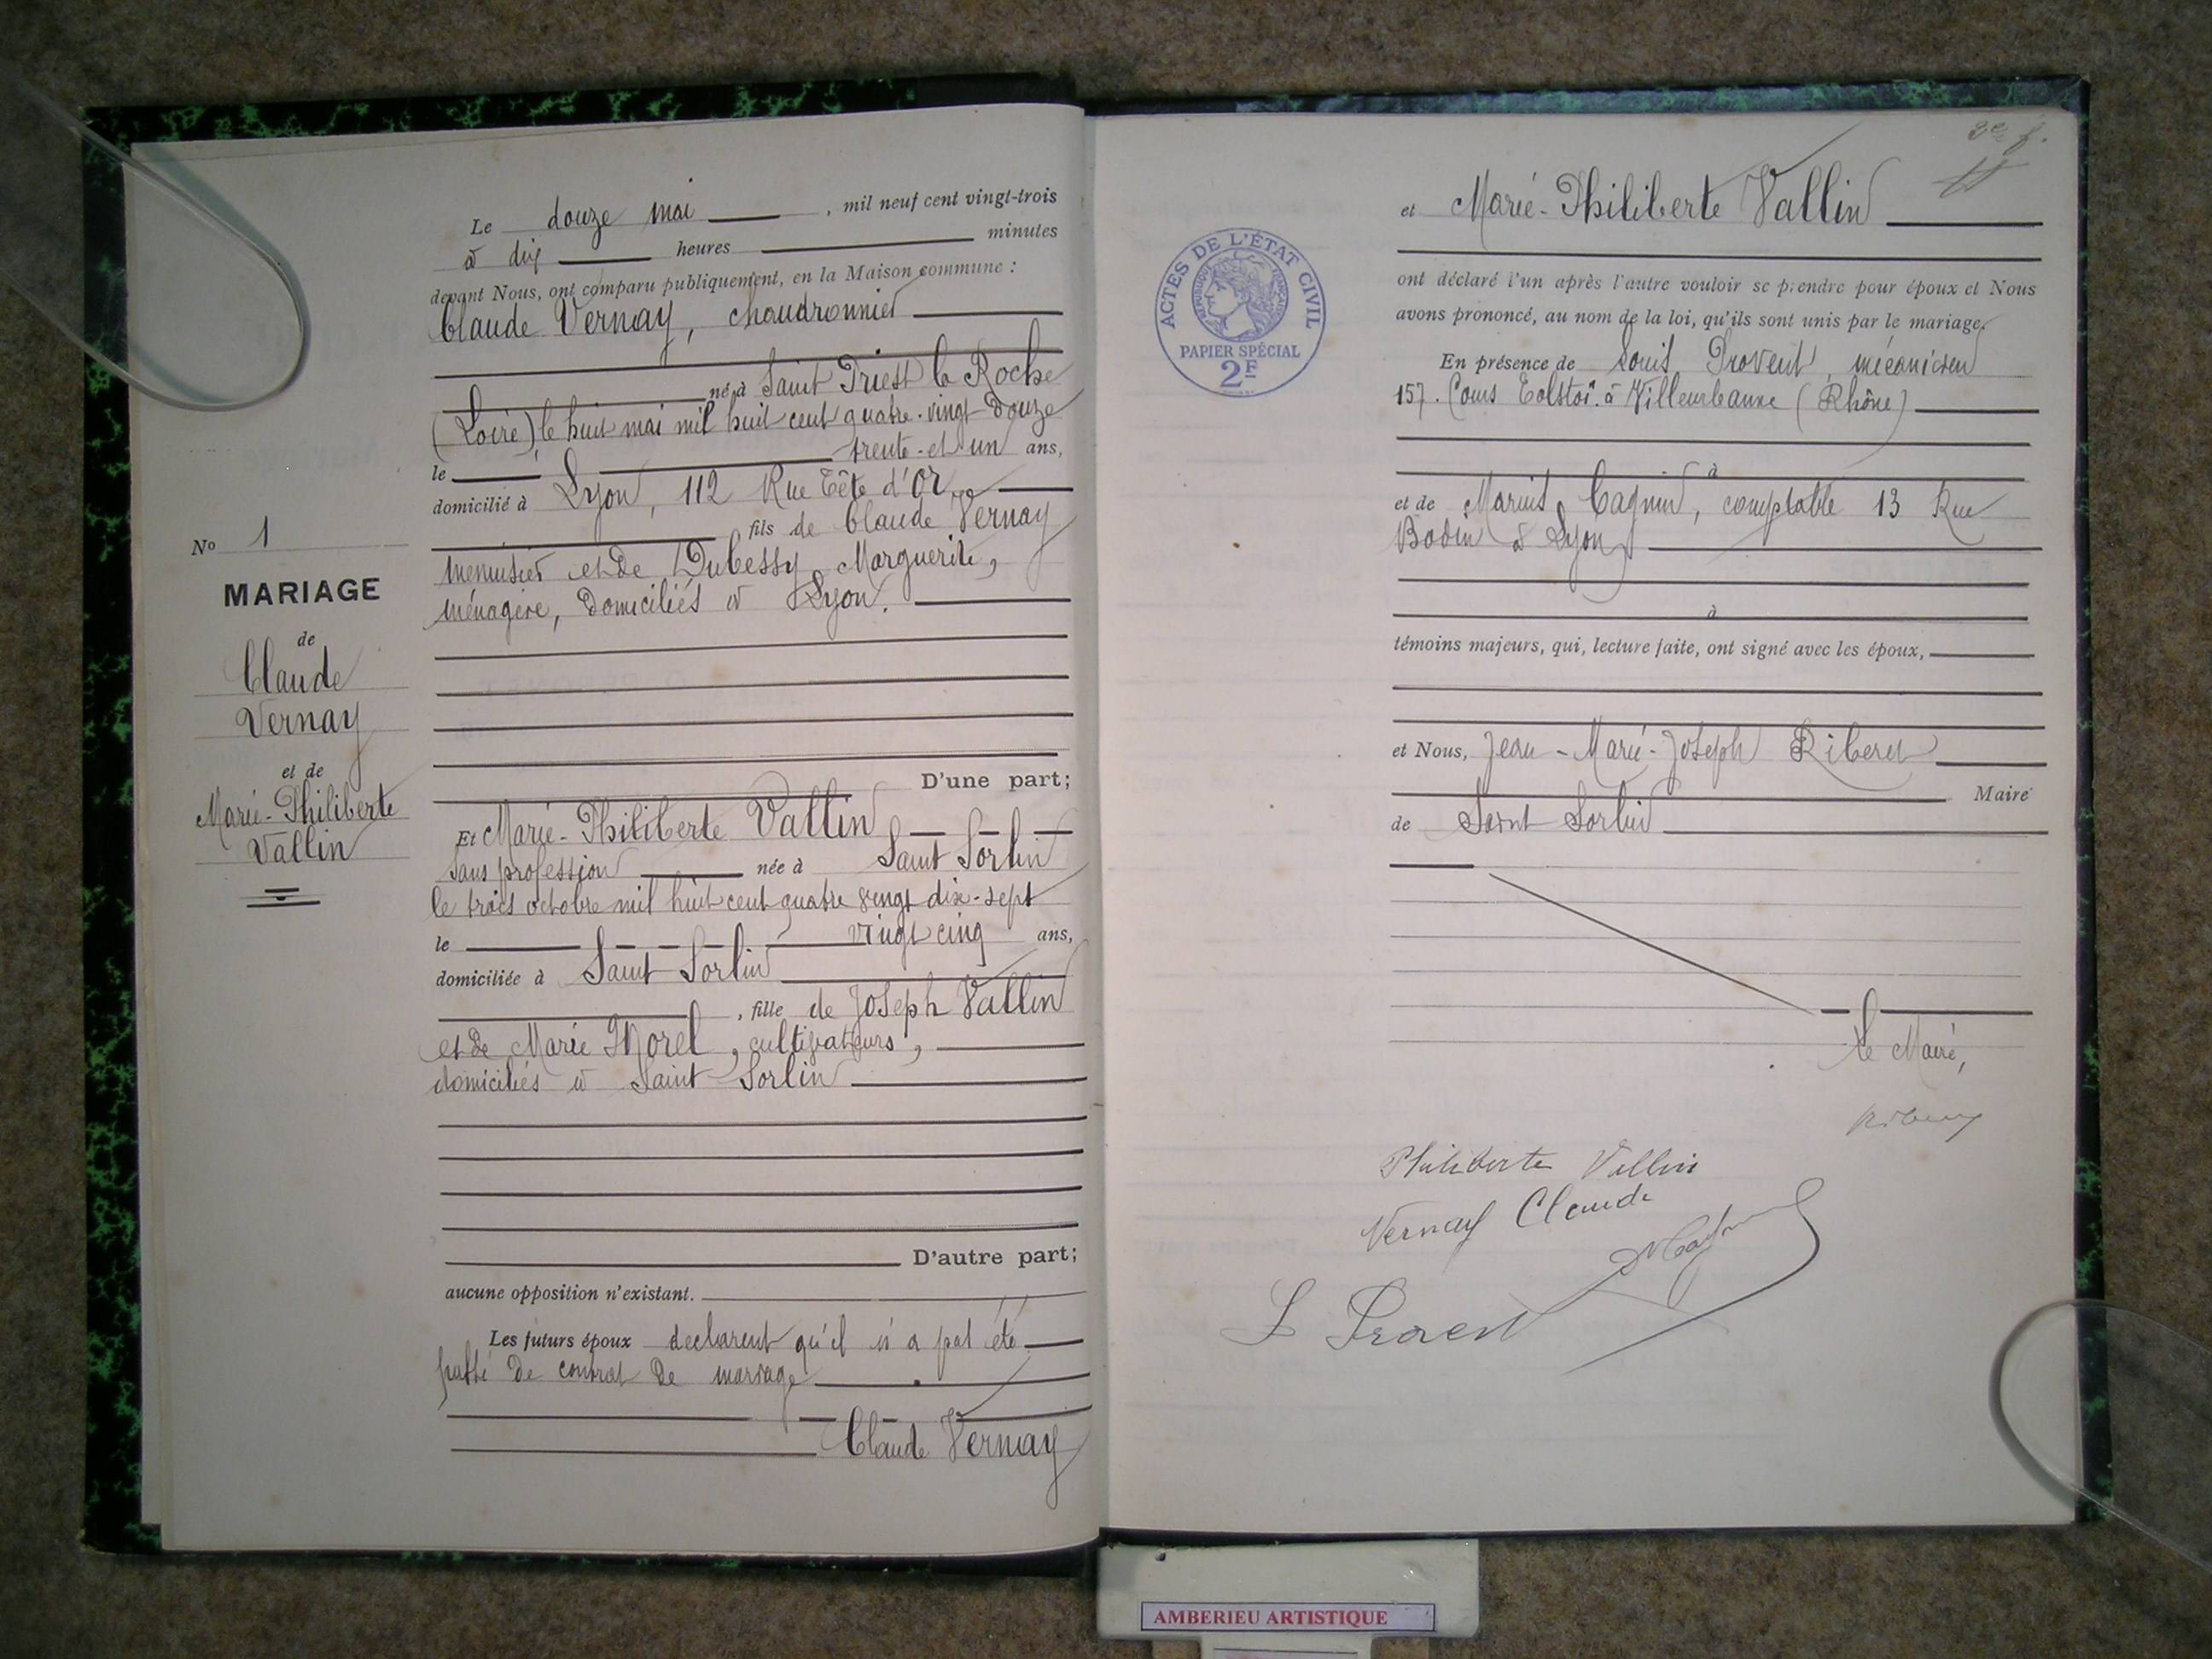 Le douze mai , mil neuf cent vingt-trois
à dix heures minutes
devant Nous, ont comparu publiquement, en la Maison commune :
Claude Vernay, chaudronnier
né à Saint Priest la Roche
(Loire) le huit mai mil huit cent quatre-vingt-douze
le trente-et-un ans,
domicilié à Lyon, 112 Rue Tête d'Or
fils de Claude Vernay
menuisier et de Dubessy Marguerite,
ménagère, domiciliés à Lyon.
No 1
MARIAGE
de
Claude
Vernay
et de
Marie-Philiberte
Vallin
D'une part;
Et Marie-Philiberte Vallin
sans profession née à Saint Sorlin
le trois octobre mil huit cent quatre vingt dix-sept
le vingt cinq ans,
domiciliée à Saint Sorlin
, fille de Joseph Vallin
et de Marie Morel, cultivateurs,
domiciliés à Saint-Sorlin
D'autre part;
aucune opposition n'existant.
Les futurs époux declarent qu'il n'a pas été
passé de contrat de mariage
Claude Vernay
3e f.
et Marie-Philiberte Vallin
ont déclaré l'un après l'autre vouloir se prendre pour époux et Nous
avons prononcé, au nom de la loi, qu'ils sont unis par le mariage.
En présence de Louis Provent, mécanicien
157. Cours Tolstoï. à Villeurbanne (Rhône)
à
et de Marius Cagnin, comptable 13 Rue
Bodin à Lyon
à
témoins majeurs, qui, lecture faite, ont signé avec les époux,
et Nous, Jean-Marie-Joseph Riberet
Maire
de Saint Sorlin
Le Maire,
Philiberte Vallin
Vernay Claude
ACTES DE L'ÉTAT CIVIL
RÉPUBLIQUE FRANÇAISE
PAPIER SPÉCIAL
2F
AMBERIEU ARTISTIQUE